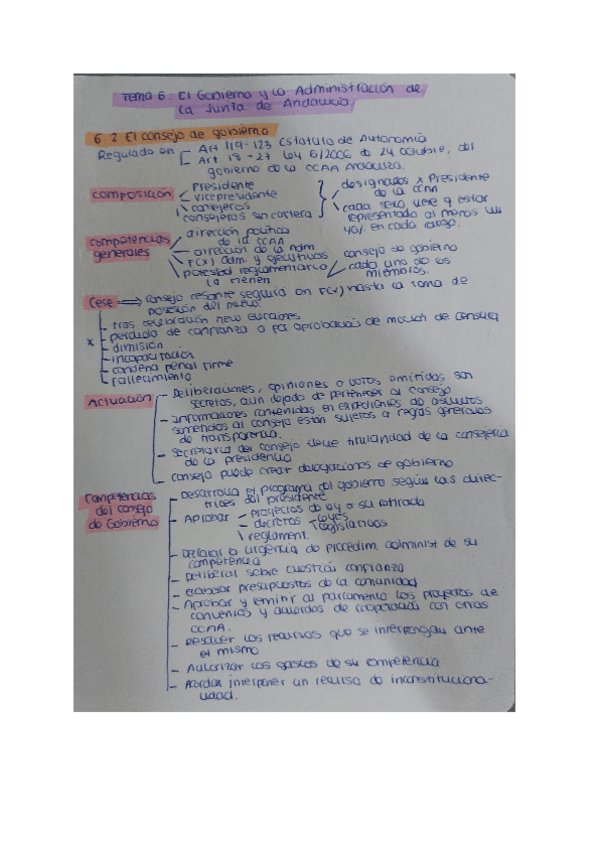 Tema 6: El Gobierno y la Administración de
la Junta de Andalucía
6.2 El consejo de gobierno
Regulado en
Art 119-123 Estatuto de Autonomía
Art 18-27 Ley 6/2006 de 24 octubre, del
gobierno de la CCAA Andaluza.
composición
Presidente
vicepresidente
consejeros
consejeros sin cartera
designados x Presidente
de la CCAA
cada sexo debe estar
representado al menos un
40% en cada cargo.
competencias
generales
dirección política
de la CCAA
dirección de la adm
F(x) adm. y ejecutivas
potestad reglamentaria
la tienen
consejo de gobierno
cada uno de los
miembros.
Cese ⇒ consejo cesante seguirá en F(x) hasta la toma de
posesión del nuevo.
x
- tras celebración new elecciones
- perdida de confianza o por aprobación de moción de censura
- dimisión
- incapacitación
- condena penal firme
- fallecimiento
Actuación
- Deliberaciones, opiniones o votos emitidos son
secretos, aun dejado de pertenecer al consejo
- informaciones contenidas en expedientes de asuntos
sometidos al consejo están sujetos a reglas generales
de transparencia.
- secretaria del consejo tiene titularidad de la consejería
de la presidencia
- consejo puede crear delegaciones de gobierno
Competencias
del consejo
de Gobierno
- Desarrolla el programa del gobierno según las direc-
trices del presidente
- Aprobar
- proyectos de ley o su retirada
- decretos
- leyes
- legislativos
\ reglament.
- Declarar la urgencia de procedim. administ de su
competencia
- Deliberar sobre cuestión confianza
- Elaborar presupuestos de la comunidad
- Aprobar y remitir al parlamento los proyectos de
convenios y acuerdos de cooperación con otras
CCAA.
- Resolver los recursos que se interpongan ante
el mismo
- Autorizar los gastos de su competencia
- Acordar interponer un recurso de inconstituciona-
lidad.